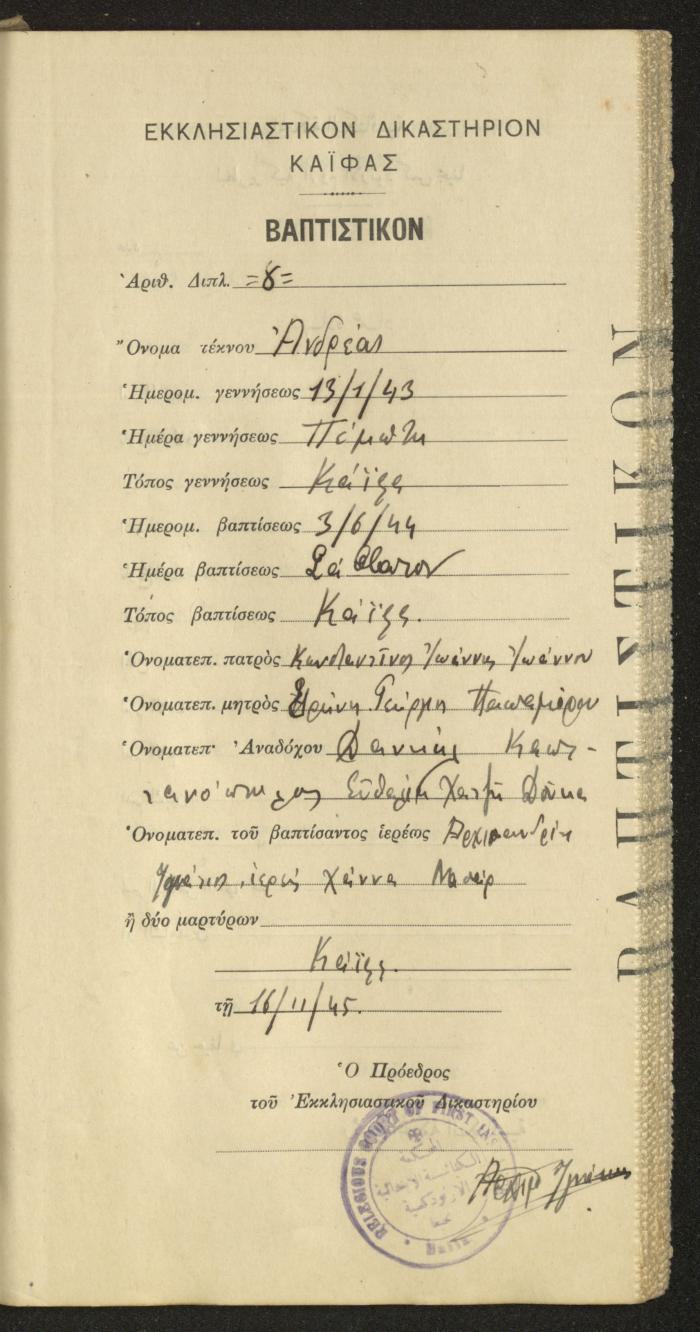 ΕΚΚΛΗΣΙΑΣΤΙΚΟΝ ΔΙΚΑΣΤΗΡΙΟΝ
ΚΑΪΦΑΣ
ΒΑΠΤΙΣΤΙΚΟΝ
Ἀριθ. Διπλ. =8=
Ὄνομα τέκνου Ἀνδρέας
Ἡμερομ. γεννήσεως 13/1/43
Ἡμέρα γεννήσεως Πέμπτη
Τόπος γεννήσεως Κάϊφα
Ἡμερομ. βαπτίσεως 3/6/44
Ἡμέρα βαπτίσεως Σάββατον
Τόπος βαπτίσεως Κάϊφα.
Ὀνοματεπ. πατρὸς Κωνσταντῖνος Ἰωάννης Ἰωάννου
Ὀνοματεπ. μητρὸς Εἰρήνη Γεώργη
Ὀνοματεπ· Ἀναδόχου Δανιήλ Καπε-
τανόπουλος Εὐθαλία Χατζῆ
Ὀνοματεπ. τοῦ βαπτίσαντος ἱερέως Ἀρχιμανδρίτ
Ἰγνάτιος ἱερεύς Χάννα
ἢ δύο μαρτύρων
Κάϊφα.
τῇ 16/11/45.
Ὁ Πρόεδρος
τοῦ Ἐκκλησιαστικοῦ Δικαστηρίου
RELIGIOUS COURT OF FIRST
Haifa
Ἀρχιμ Ἰγνάτιος
ΒΑΠΤΙΣΤΙΚΟΝ